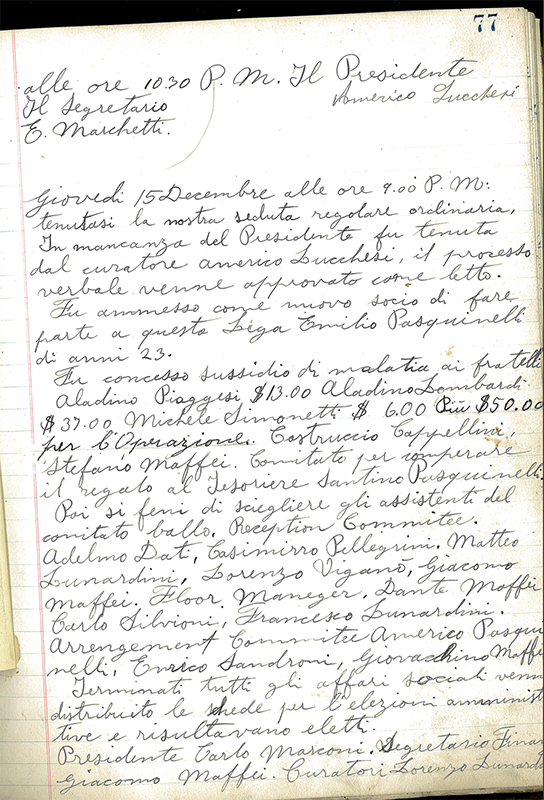 77
alle ore 10.30 P. M. Il Presidente
Il Segretario Americo Lucchesi
E. Marchetti.
Giovedi 15 Decembre alle ore 9.00 P. M:
tenutasi la nostra seduta regolare ordinaria,
In mancanza del Presidente fu tenuta
dal curatore Americo Lucchesi, il processo
verbale venne approvato come letto.
Fu ammesso come nuovo socio di fare
parte a questa Lega Emilio Pasquinelli
di anni 23.
Fu concesso sussidio di malatia ai fratelli
Aladino Piaggesi $13.00 Aladino Lombardi
$37.00 Michele Simonetti $ 6.00 Più $50.00
per l'Operazione. Castruccio Cappellini,
Stefano Maffei. Comitato per comperare
il regalo al Tesoriere Santino Pasquinelli.
Poi si fenì di sciegliere gli assistenti del
comitato ballo, Reception Commitee.
Adelmo Dati, Casimirro Pellegrini, Matteo
Lunardini, Lorenzo Viganò, Giacomo
Maffei. Floor Maneger, Dante Maffei
Carlo Silvioni, Francesco Lunardini.
Arrengement Commitee Americo Pasqui
nelli, Enrico Sandroni, Giovachino Maffe
Terminati tutti gli affari sociali venn
distribuito le schede per l'elezioni amminist
tive e risultavano eletti.
Presidente Carlo Marconi, Segretario Finan
Giacomo Maffei. Curatori Lorenzo Lunard